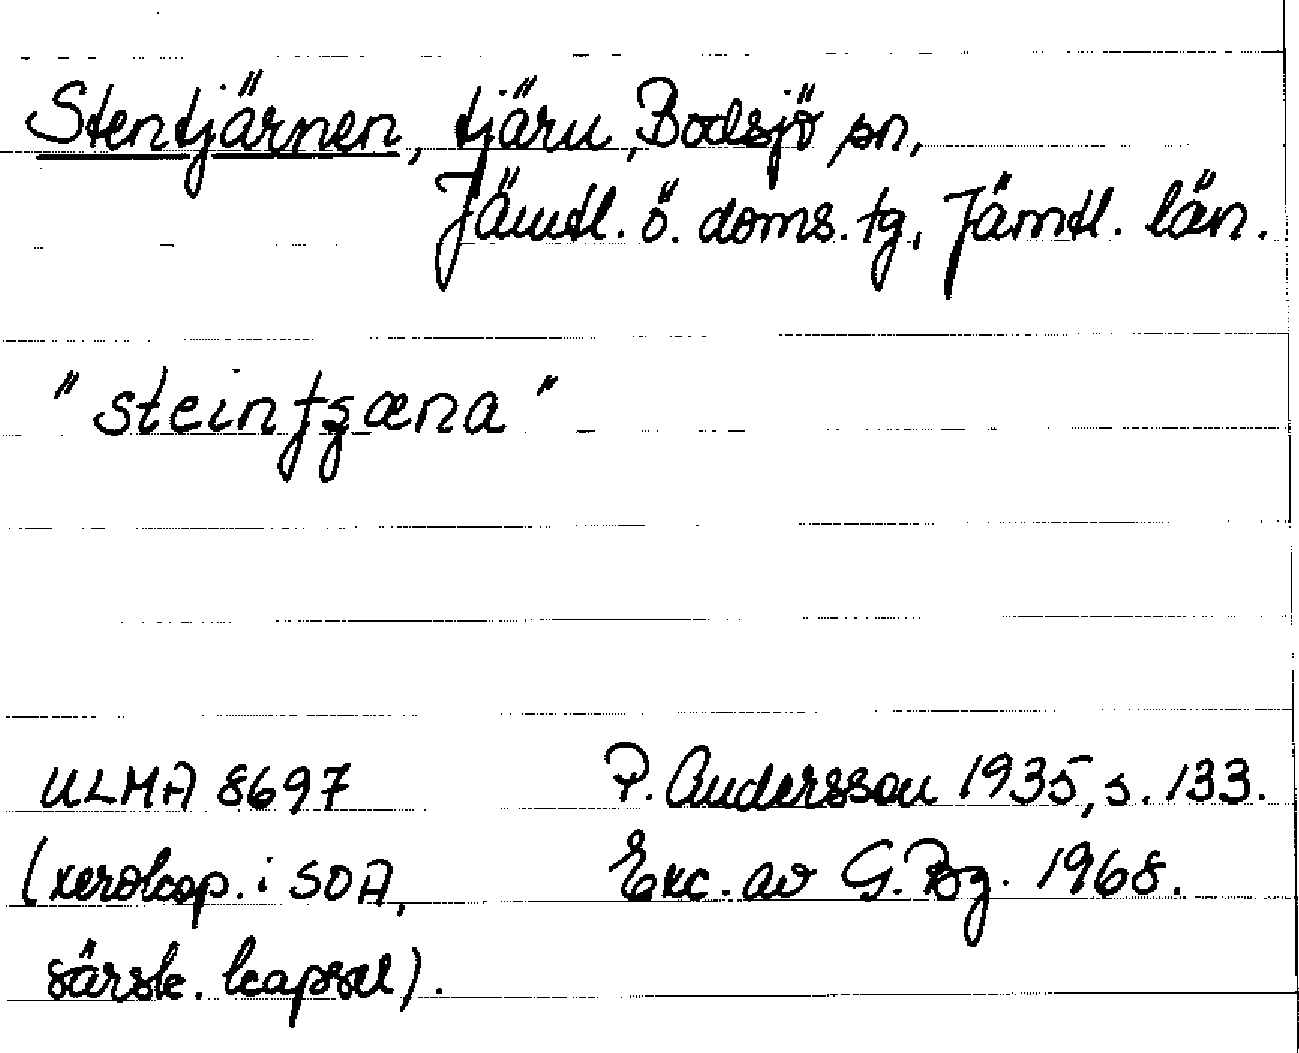 Stentjärnen, tjärn, Bodsjö sn,
Jämtl. ö. doms. tg, Jämtl. län.
"steintʒæna"
ULMA 8697
(xerokop. i SOA,
särsk. kapsel).
P. Andersson 1935, s. 133.
Exc. av G. Bg. 1968.